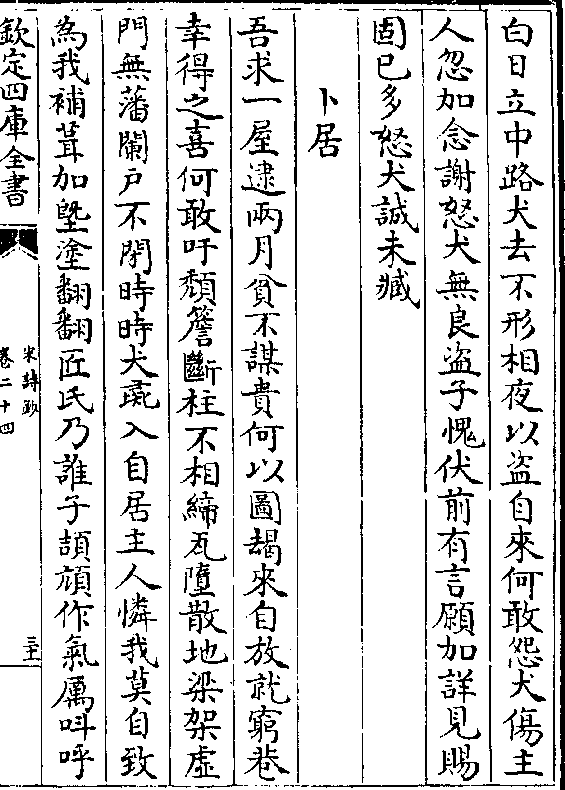 白日立中路犬去不形相夜以盜自來何敢怨犬傷主
人忽加念謝怒犬無良盜子愧伏前有言願加詳見賜
固已多怒犬誠未臧
卜居
吾求一屋逮兩月貧不謀貴何以圖朅來自放就窮巷
幸得之喜何敢吁頽簷斷柱不相締瓦墮散地梁架虛
門無藩闌户不閉時時犬彘入自居主人憐我莫自致
為我補葺加墍塗翻翻匠氏乃誰子頡頏作氣厲呌呼
欽定四庫全書
宋詩鈔
卷二十四